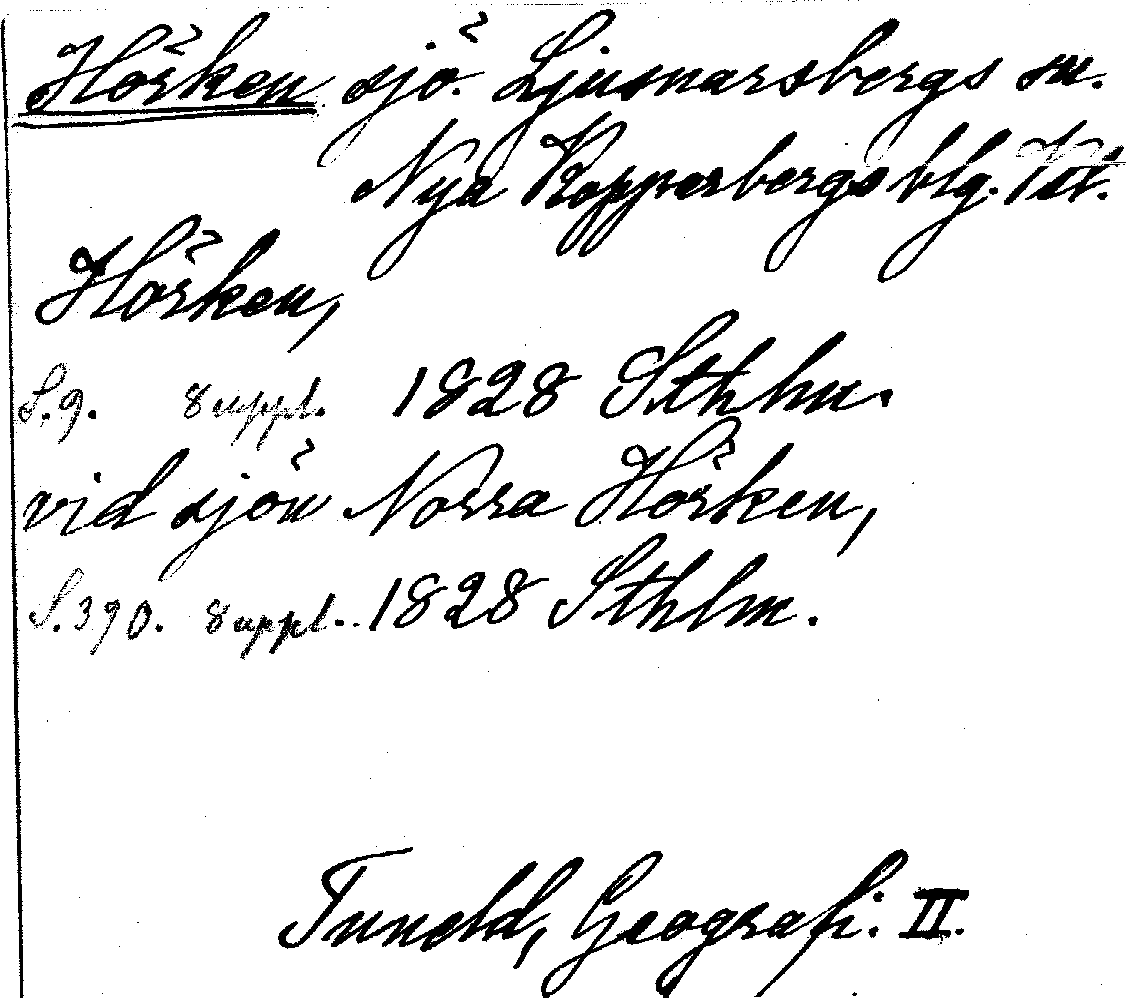 Hörken sjö. Ljusnarsbergs sn.
Nya Kopparbergs blg. Vstm.
Hörken,
S.9. 8 uppl. 1828 Sthlm.
vid sjön Norra Hörken,
S.390. 8 uppl. 1828 Sthlm.
Tuneld, Geografi. II.